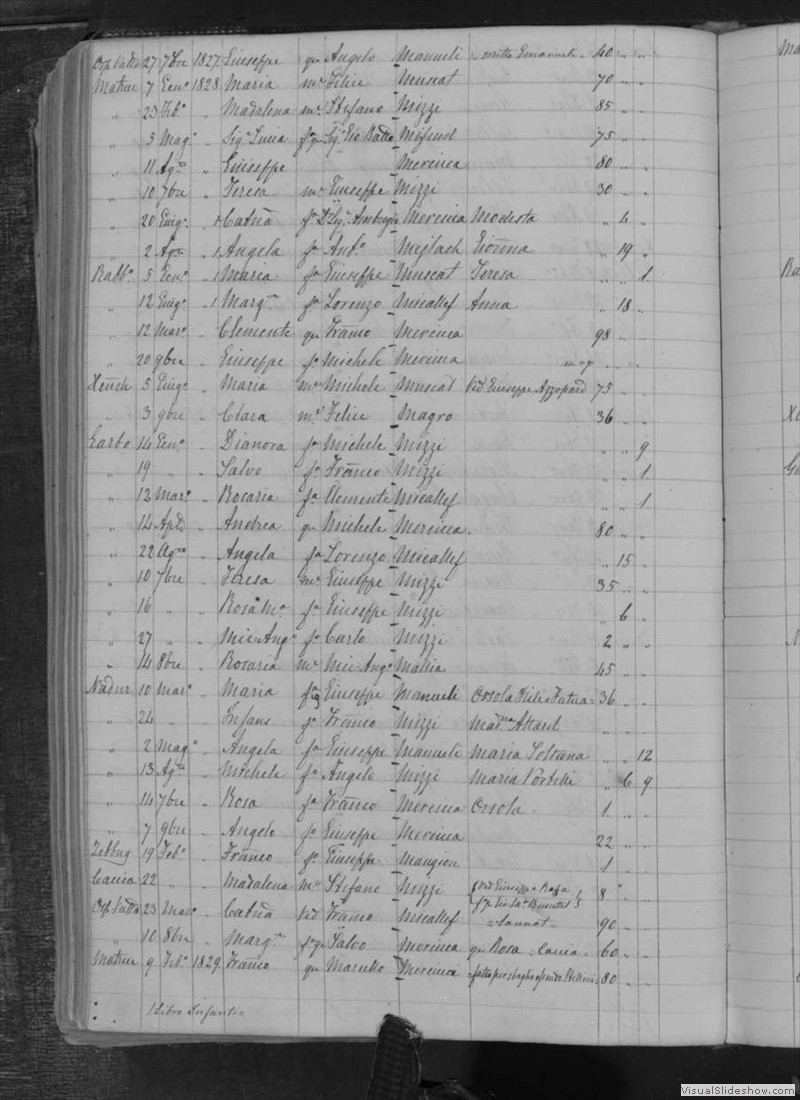 Osp Vatta 27 7bre 1827 Giuseppe qu Angelo Manueli scritto Emanueli 40 " "
Matrice 7 Gen° 1828 Maria m.e Felice Muscat 70 " "
" 23 Feb° " Madalena m.e Stefano Mizzi 85 " "
" 5 Mag° " Sig.a Lucia fa qu Sig.r Gio Batta Mifsud 75 " "
" 11 Ag.to " Giuseppe Mercieca 80 " "
" 10 7bre " Teresa m.e Giuseppe Mizzi 30 " "
" 20 Giug° 1 Catna fa Dr Sigr Ambrogio Mercieca Modesta " 6 "
" 2 Ag.to 1 Angela fa Ant° Mejlach Gionna " 19 "
Rabb° 5 Gen° 1 Maria fa Giuseppe Muscat Teresa " " 1
" 12 Giug° 1 Marg.ta fa Lorenzo Micallef Anna " 18 "
" 12 Mar° " Clemente qu Franco Mercieca 98 " "
" 20 9bre " Giuseppe fo Michele Mercieca
Xeuch 5 Giug° " Maria m.e Michele Muscat Ved Giuseppe Azzopardi 75 " "
" 3 9bre " Clara m.e Felice Magro 36 " "
Garbo 14 Gen° " Dianora fa Michele Mizzi " " 9
" 19 " " Salvo fo Franco Mizzi " " 1
" 12 Mar° " Rosaria fa Clemente Micallef " " 1
" 14 Aple " Andrea qu Michele Mercieca 80 " "
" 22 Ag.to " Angela fa Lorenzo Micallef " 15 "
" 10 7bre " Teresa m.e Giuseppe Mizzi 35 " "
" 16 " " Rosa Ma fa Giuseppe Mizzi " 6 "
" 27 " " Mic Ang° fo Carlo Mizzi 2 " "
" 14 8bre " Rosaria m.e Mic Ang° Mallia 45 " "
Nadur 10 Mar° " Maria fa q Giuseppe Manueli Orsola 36 " "
" 24 " " Infans fo Franco Mizzi Mad.na Attard " " "
" 2 Mag° " Angela fa Giuseppe Manueli Maria Soltana " " 12
" 13 Ag.to " Michele fo Angelo Mizzi Maria Portelli " 6 9
" 14 7bre " Rosa fa Franco Mercieca Orsola 1 " "
" 7 9bre " Angelo fo Giuseppe Mercieca 22 " "
Zebbug 19 Feb° " Franco fo Giuseppe Mangion 1 " "
Caccia 22 " " Madalena m.e Stefano Mizzi Ved Giuseppe 8 " "
Osp Vatta 23 Mar° " Catna Ved Franco Micallef = Sannat = 90 " "
" 10 8bre " Marg.ta fa qu Salvo Mercieca qu Rosa = Caccia = 60 " "
Matrice 9 Feb° 1829 Franco qu Marcello Mercieca 80 " "
1 Libro Infantio
VisualSlideshow.com